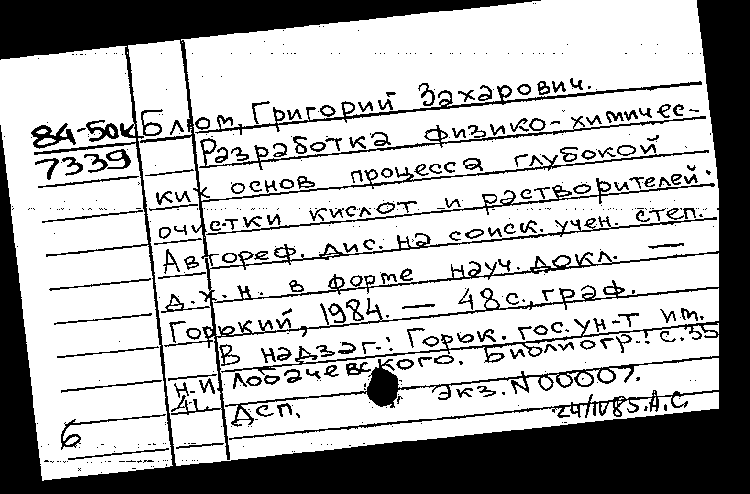 84-50к Блюм, Григорий Захарович.
7339 Разработка физико-химичес-
ких основ процесса глубокой
очистки кислот и растворителей:
Автореф. дис. на соиск. учен. степ.
д. х. н. в форме науч. докл. —
Горький, 1984. — 48 с., граф.
В надзаг.: Горьк. гос. ун-т им.
н.и. Лобачевского. Библиогр.: с. 35
41. ДСП. Экз. N 00007.
6 24/IV85. А.С.